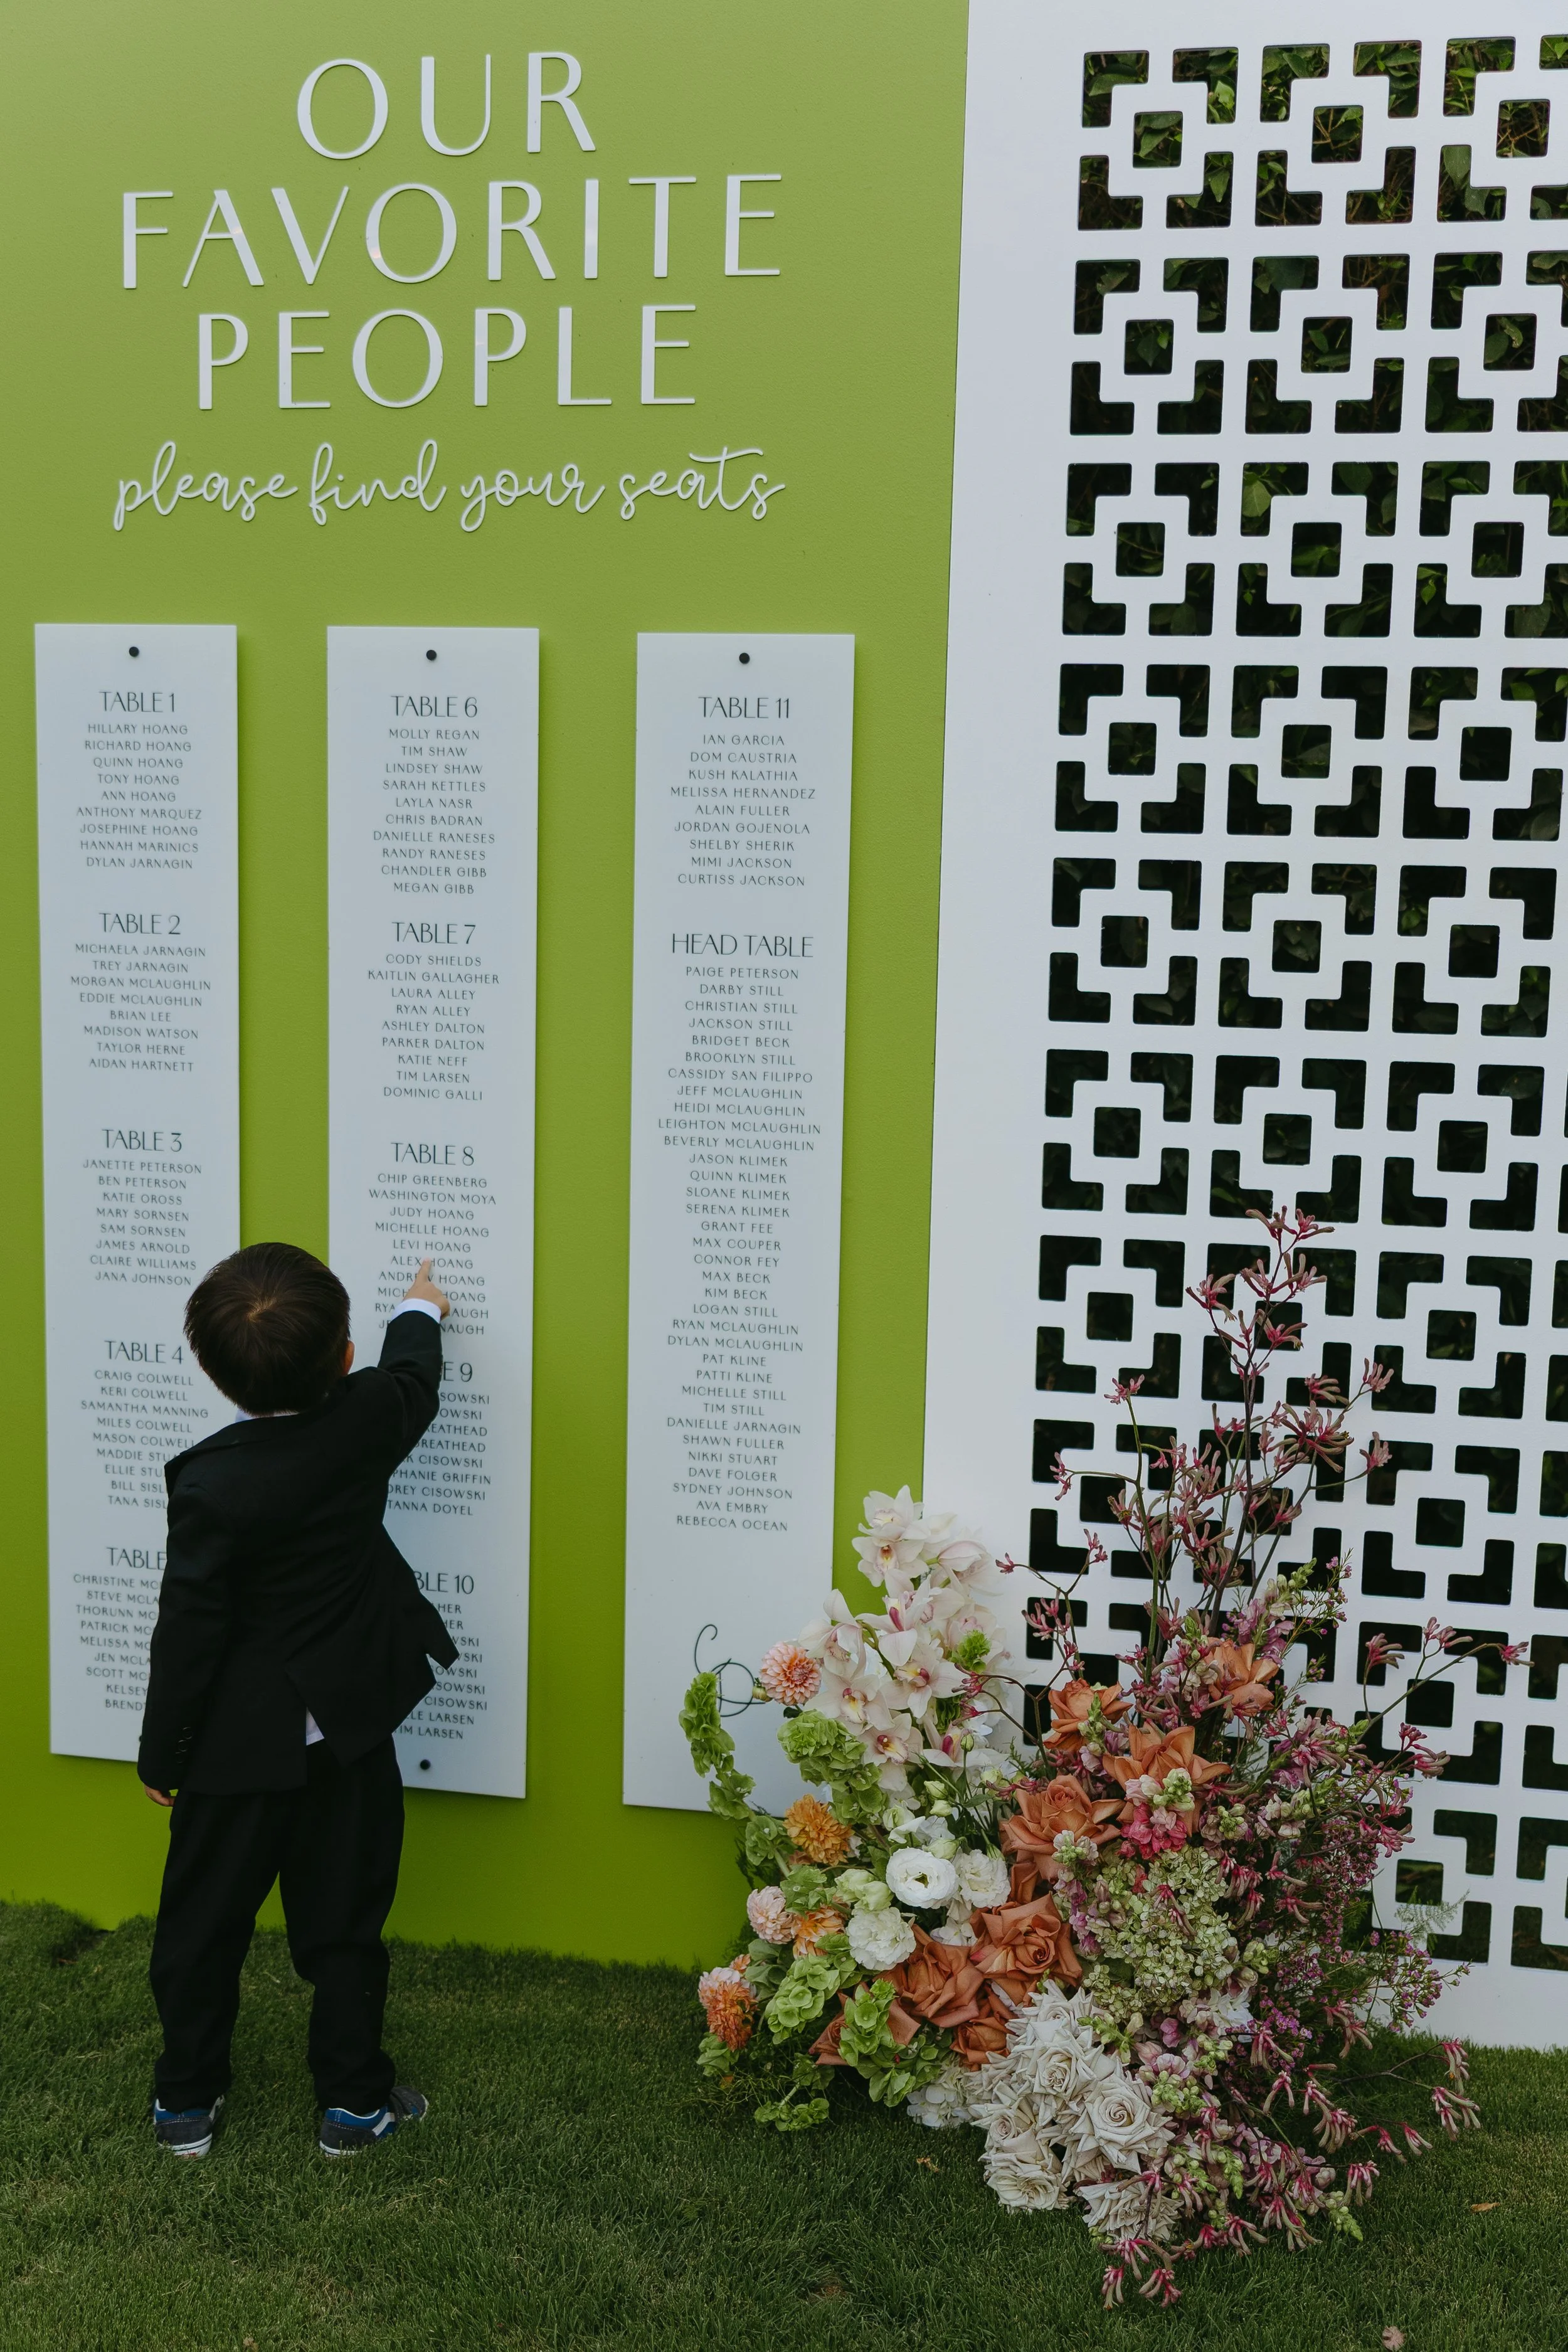 OUR
FAVORITE
PEOPLE
please find your seats
TABLE 1
HILLARY HOANG
RICHARD HOANG
QUINN HOANG
TONY HOANG
ANN HOANG
ANTHONY MARQUEZ
JOSEPHINE HOANG
HANNAH MARINICS
DYLAN JARNAGIN
TABLE 2
MICHAELA JARNAGIN
TREY JARNAGIN
MORGAN MCLAUGHLIN
EDDIE MCLAUGHLIN
BRIAN LEE
MADISON WATSON
TAYLOR HERNE
AIDAN HARTNETT
TABLE 3
JANETTE PETERSON
BEN PETERSON
KATIE OROSS
MARY SORNSEN
SAM SORNSEN
JAMES ARNOLD
CLAIRE WILLIAMS
JANA JOHNSON
TABLE 4
CRAIG COLWELL
KERI COLWELL
SAMANTHA MANNING
MILES COLWELL
MASON COLWELL
MADDIE
ELLIE
BILL
TANA
TABLE
CHRISTINE
STEVE
THORUNN
PATRICK
MELISSA
JEN
SCOTT
KELSEY
TABLE 6
MOLLY REGAN
TIM SHAW
LINDSEY SHAW
SARAH KETTLES
LAYLA NASR
CHRIS BADRAN
DANIELLE RANESES
RANDY RANESES
CHANDLER GIBB
MEGAN GIBB
TABLE 7
CODY SHIELDS
KAITLIN GALLAGHER
LAURA ALLEY
RYAN ALLEY
ASHLEY DALTON
PARKER DALTON
KATIE NEFF
TIM LARSEN
DOMINIC GALLI
TABLE 8
CHIP GREENBERG
WASHINGTON MOYA
JUDY HOANG
MICHELLE HOANG
LEVI HOANG
ALEX HOANG
ANDREW HOANG
HOANG
9
CISOWSKI
GRIFFIN
CISOWSKI
DOYEL
10
CISOWSKI
LARSEN
TIM LARSEN
TABLE 11
IAN GARCIA
DOM CAUSTRIA
KUSH KALATHIA
MELISSA HERNANDEZ
ALAIN FULLER
JORDAN GOJENOLA
SHELBY SHERIK
MIMI JACKSON
CURTISS JACKSON
HEAD TABLE
PAIGE PETERSON
DARBY STILL
CHRISTIAN STILL
JACKSON STILL
BRIDGET BECK
BROOKLYN STILL
CASSIDY SAN FILIPPO
JEFF MCLAUGHLIN
HEIDI MCLAUGHLIN
LEIGHTON MCLAUGHLIN
BEVERLY MCLAUGHLIN
JASON KLIMEK
QUINN KLIMEK
SLOANE KLIMEK
SERENA KLIMEK
GRANT FEE
MAX COUPER
CONNOR FEY
MAX BECK
KIM BECK
LOGAN STILL
RYAN MCLAUGHLIN
DYLAN MCLAUGHLIN
PAT KLINE
PATTI KLINE
MICHELLE STILL
TIM STILL
DANIELLE JARNAGIN
SHAWN FULLER
NIKKI STUART
DAVE FOLGER
SYDNEY JOHNSON
AVA EMBRY
REBECCA OCEAN